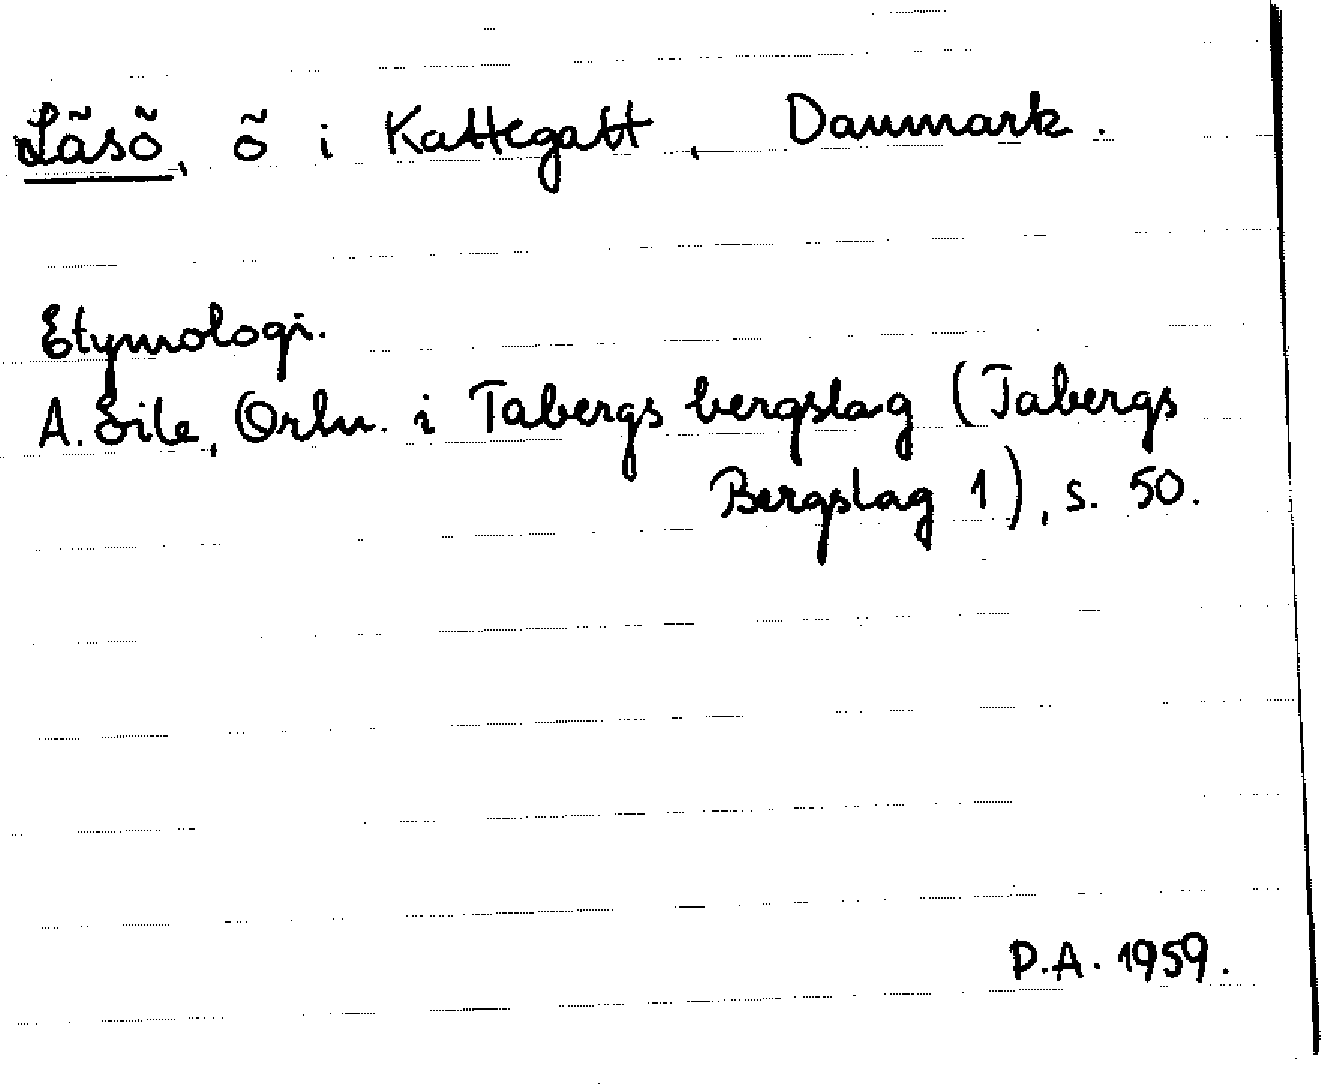 Läsö, ö i Kattegatt, Danmark.
Etymologi.
A. Ortn. i Tabergs bergslag (Tabergs
Bergslag 1), s. 50.
P.A. 1959.